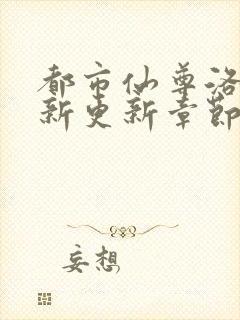 都市仙尊洛
新更新章節
妄想